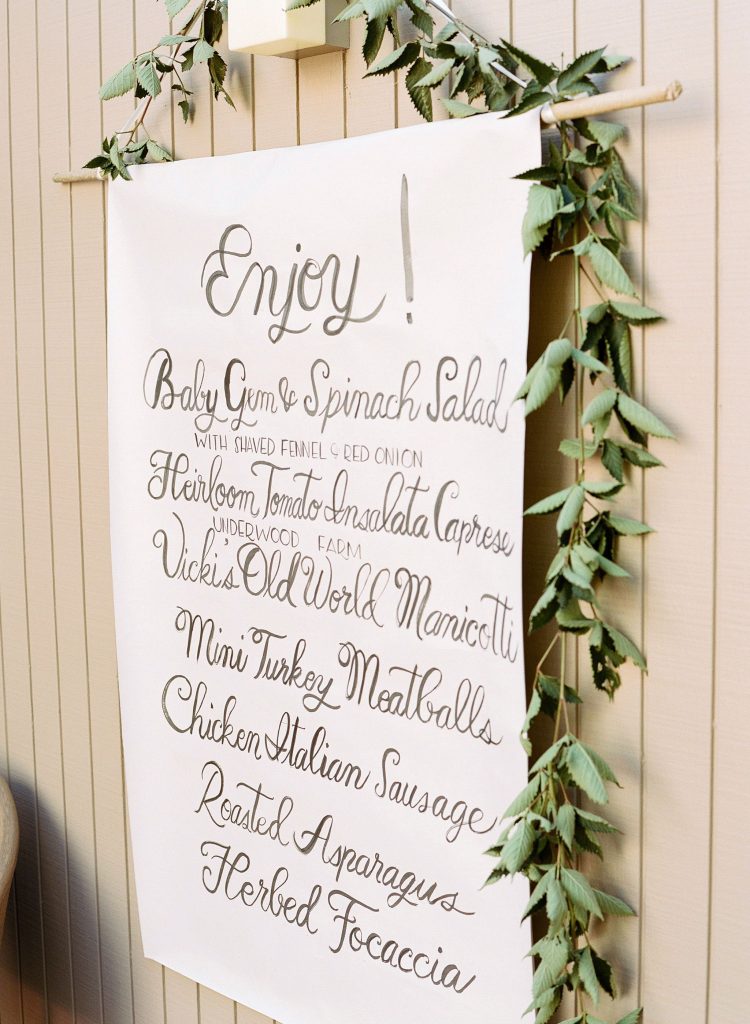 Enjoy!
Baby Gem & Spinach Salad
WITH SHAVED FENNEL & RED ONION
Heirloom Tomato Insalata Caprese
UNDERWOOD FARM
Vicki's Old World Manicotti
Mini Turkey Meatballs
Chicken Italian Sausage
Roasted Asparagus
Herbed Focaccia